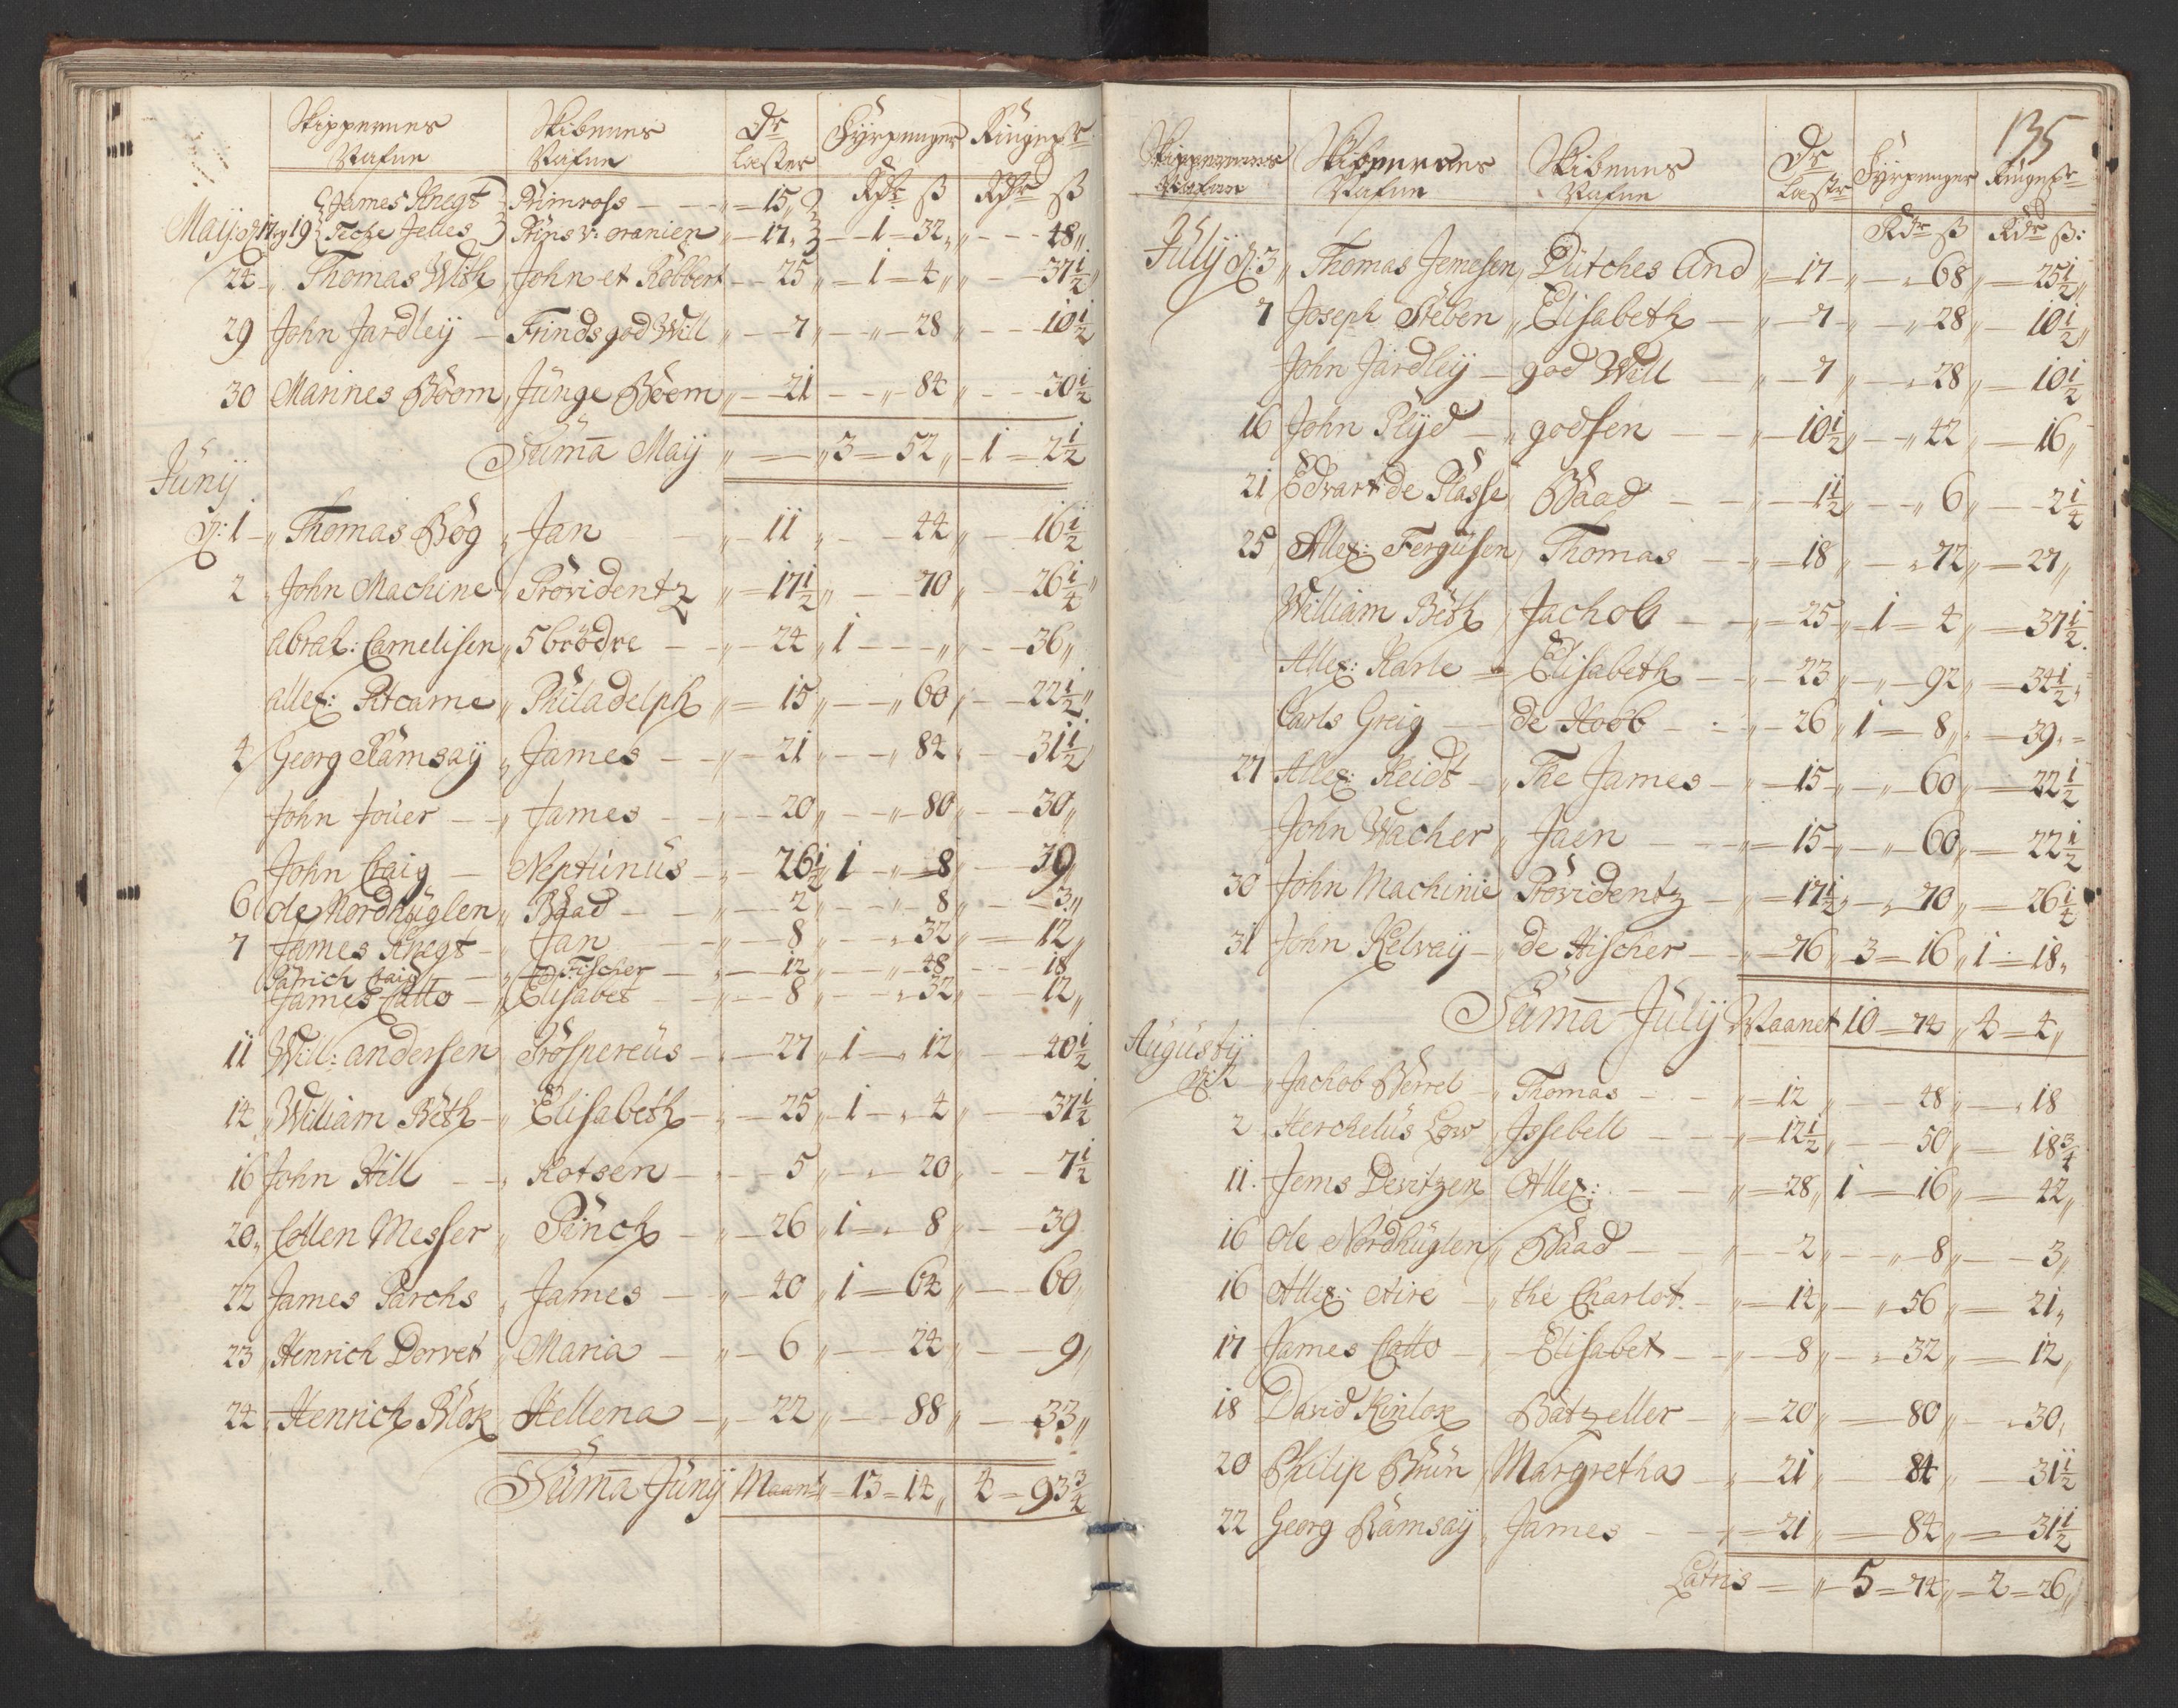 Skippernes Skibennes Dr Fyrpenger Ringepr
Nafne Nafne Læster Rdr ß Rdr ß
James Knegt Primross — 15
Maij d 17 og 19 Tecke Jelles Prins v: oranien — 17 — 1 = 32 — 48
24 Thomas With John et Robbert — 25 — 1 = 4 — 37 1/2
29 John Jardleÿ — Frinds god Will — 7 — 28 — 10 1/2
30 Marines Böem Junge Böem — 21 — 84 — 30 1/2
Suma Maÿ — 3 = 52 — 1 = 2 1/2
Junÿ
d: 1 Thomas Bög Jan — 11 — 44 — 16 1/2
2 John Machine Providentz — 17 1/2 — 70 — 26 1/4
abrah: Carnelisen 5 brödre — 24 1 — 36
allex: Pitcarne Philadelph — 15 — 60 — 22 1/2
4 Georg Ramsaÿ James — 21 — 84 — 31 1/2
John Jouer — James — 20 — 80 — 30
John Craig — Neptunus — 26 1/2 1 — 8 — 39
6 ole Nordhuglen Baad — 2 — 8 — 3
7 James Knegt — Jan — 8 — 32 — 12
Patrich Craig — Fischer — 12 — 48 — 18
James Catto — Elisabet — 8 — 32 — 12
11 Will: andersen Prospereus — 27 1 — 12 — 40 1/2
14 William Beth — Elisabeth — 25 1 — 4 — 37 1/2
16 John Hill — Rotsen — 5 — 20 — 7 1/2
20 Collen Messer Pinch — 26 1 — 8 — 39
22 James Parchs James — 40 1 = 64 — 60
23 Henrich Dorvet Maria — 6 — 24 — 9
24 Henrich Blok Hellena — 22 — 88 — 33
Suma Junÿ Maant — 13 = 14 4 = 93 3/4
135
Skippernes Skippernes Skibennes Dr Fyrpenger Ringepr
Nafne Nafne Nafne Læstr
Rdr ß Rdr ß:
Julÿ d: 3 Thomas Jemesen Dutches And — 17 — 68 — 25 1/2
7 Joseph Steben Elisabeth — 7 — 28 — 10 1/2
John Jardleÿ — god Will — 7 — 28 — 10 1/2
16 John Plÿd — godsen — 10 1/2 — 42 — 16
21 Edvart de Plasse Baad — 1 1/2 — 6 — 2 1/4
25 Allex: Fergusen Thomas — 18 — 72 — 27
William Beth Jachob — 25 1 — 4 — 37 1/2
Allex: Karle — Elisabeth — 23 — 92 — 34 1/2
Carls Greig — de Hoob — 26 1 — 8 — 39
27 Allex: Reidt — The James — 15 — 60 — 22 1/2
John Wacher Jaen — 15 — 60 — 22 1/2
30 John Machinie Providentz — 17 1/2 — 70 — 26 1/4
31 John Kelvaÿ — de Hischer — 76 3 = 16 1 = 18
Suma Julÿ Maanet 10 = 74 4 = 4
Augustÿ
d: 1 Jachob Berrel — Thomas — 12 — 48 — 18
2 Herchelus Low Jssebell — 12 1/2 — 50 — 18 3/4
11 Jems Devitzen Allex: — 28 1 = 16 — 42
16 ole Nordhuglen Baad — 2 — 8 — 3
16 Allex: Aire — the Charlot — 14 — 56 — 21
17 James Catto — Elisabet — 8 — 32 — 12
18 David Kinlox Batzeller — 20 — 80 — 30
20 Philip Brun Margretha — 21 — 84 — 31 1/2
22 Georg Ramsaÿ James — 21 — 84 — 31 1/2
Latris — 5 = 74 — 2 = 26